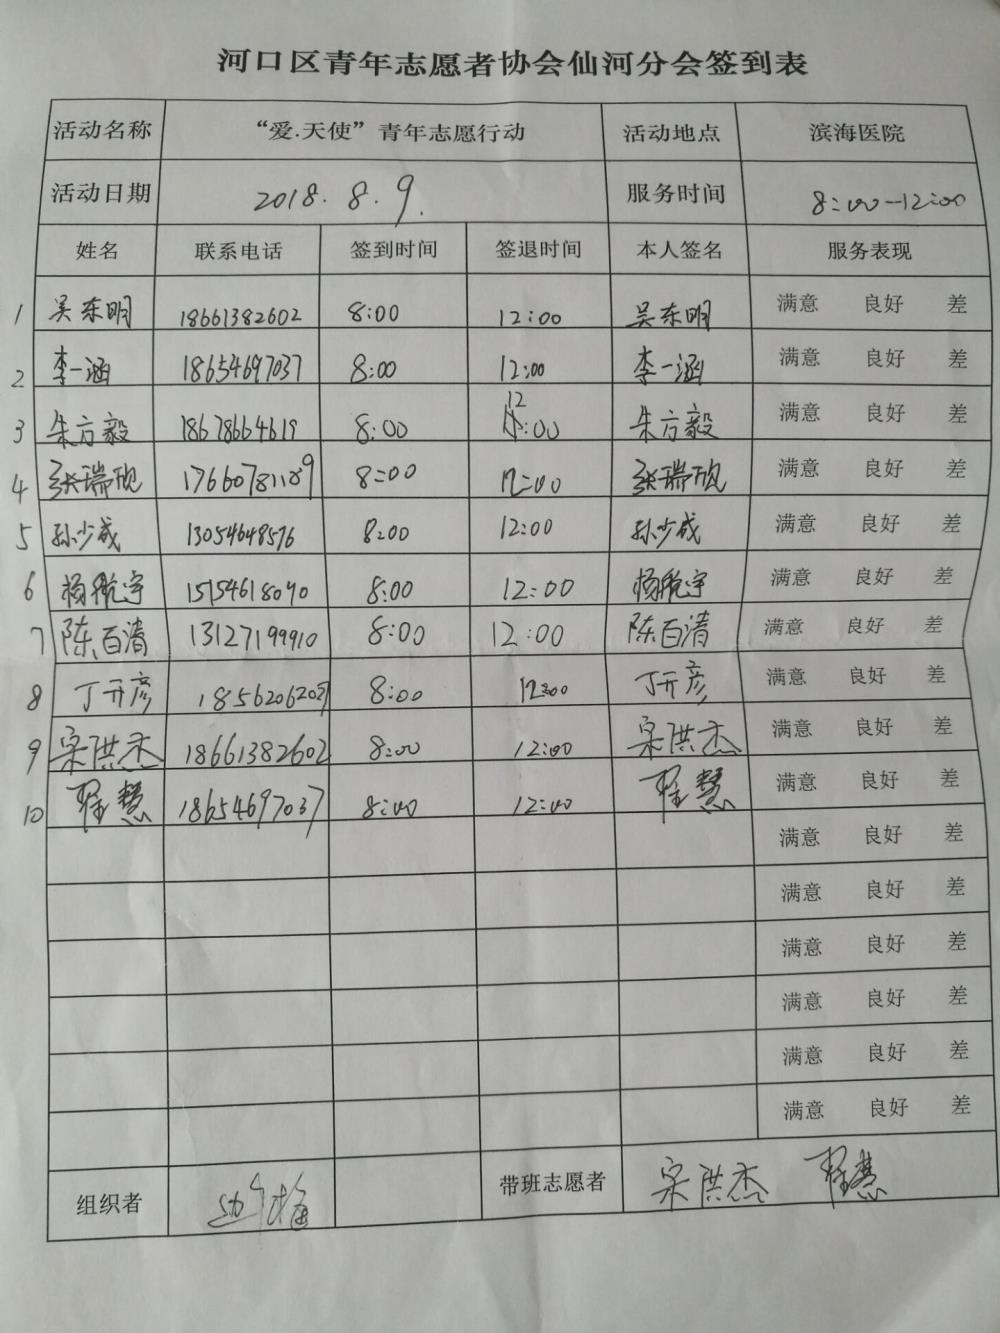 河口区青年志愿者协会仙河分会签到表
活动名称 “爱.天使”青年志愿行动 活动地点 滨海医院
活动日期 2018.8.9. 服务时间 8:00-12:00
姓名 联系电话 签到时间 签退时间 本人签名 服务表现
1 吴东明 18661382602 8:00 12:00 吴东明 满意 良好 差
2 李一涵 18654697037 8:00 12:00 李一涵 满意 良好 差
3 朱方毅 18678664619 8:00 12:00 朱方毅 满意 良好 差
4 张瑞砚 17660781189 8:00 12:00 张瑞砚 满意 良好 差
5 孙少成 13054648576 8:00 12:00 孙少成 满意 良好 差
6 杨航宇 15154618090 8:00 12:00 杨航宇 满意 良好 差
7 陈百清 13127199910 8:00 12:00 陈百清 满意 良好 差
8 丁开彦 18562062027 8:00 12:00 丁开彦 满意 良好 差
9 宋洪杰 18661382602 8:00 12:00 宋洪杰 满意 良好 差
10 程慧 18654697037 8:00 12:00 程慧 满意 良好 差
满意 良好 差
满意 良好 差
满意 良好 差
满意 良好 差
满意 良好 差
满意 良好 差
组织者 带班志愿者 宋洪杰 程慧